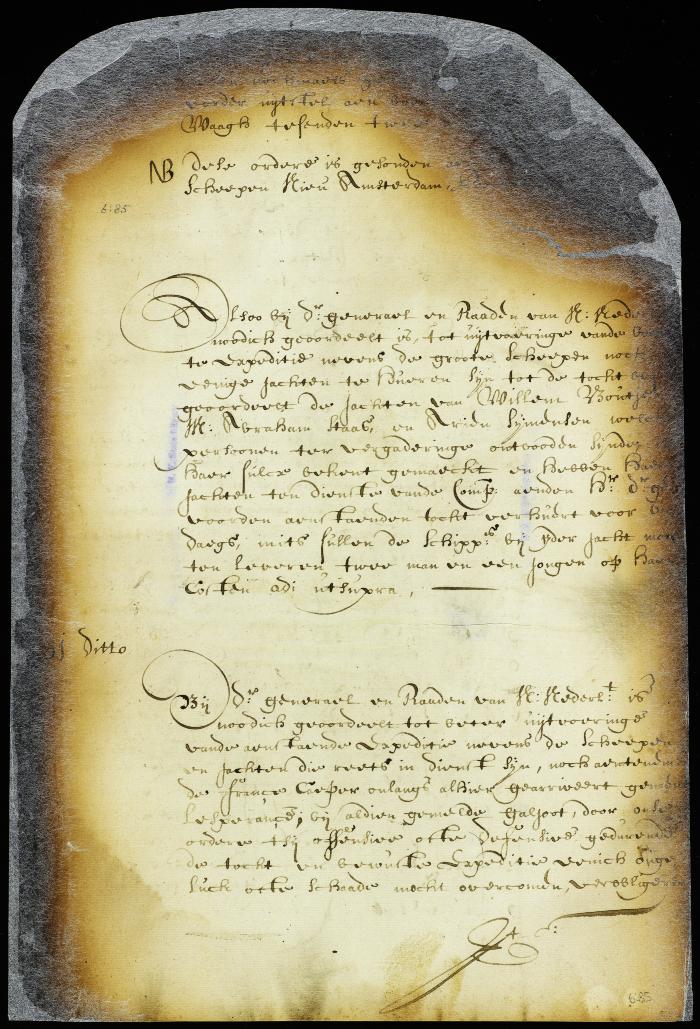 vorder uijtstel aen
Waagh tesenden
NB Dese ordere is gesonden
Scheepen Nieu Amsterdam,
6:85
Alsoo bij dr. generael en Raaden van N: Neder
noodich geoordeelt is, tot uijtvoeringe vande
te Expeditie nevens de groote scheepen noch
eenige Jachten te hueren sijn tot de tocht
geoordeelt de Jachten van Willem
Mr. Abraham Staas, en Arien Sijmensen
persoonen ter vergaderinge ontbooden sijnde
haer sulcx bekent gemaeckt en hebben haer
Jachten ten dienste vande Comp: aenden Hr. dr.
voorden aenstaenden tocht verhuert voor
daegs, mits sullen de schipprs. bij yder Jacht
ten leveren twee man en een jongen op haer
Costen adi utsupra,
Ditto
Bij dr. generael en Raaden van N: Nederlt. is
noodich geoordeelt tot beter uijtvoeringe
vande aenstaende Expeditie nevens de scheepen
en Jachten die reets in dienst sijn, noch aentenemen
de france Caeper onlangs alhier gearriveert
Lesperance, bij aldien gemelde galjoot, door onse
ordere tsij offensive ofte defensive gedurende
de tocht en bewuste Expeditie eenich onge
luck ofte schaade mocht overcomen,
6:85